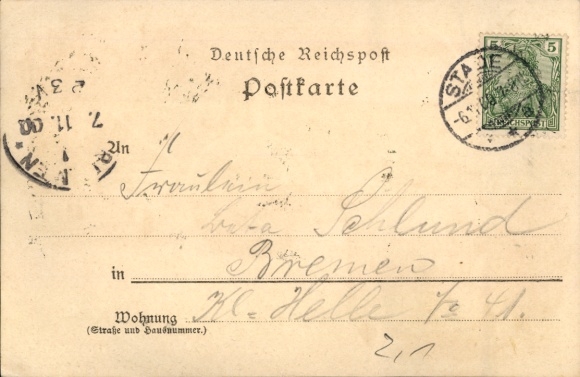 Deutsche Reichspost
Postkarte
5
5
REICHSPOST
STADE
7.11.00
An
Fräulein
Schlund
in Bremen.
Kl. Helle No 41.
Wohnung
(Straße und Hausnummer.)
2,1